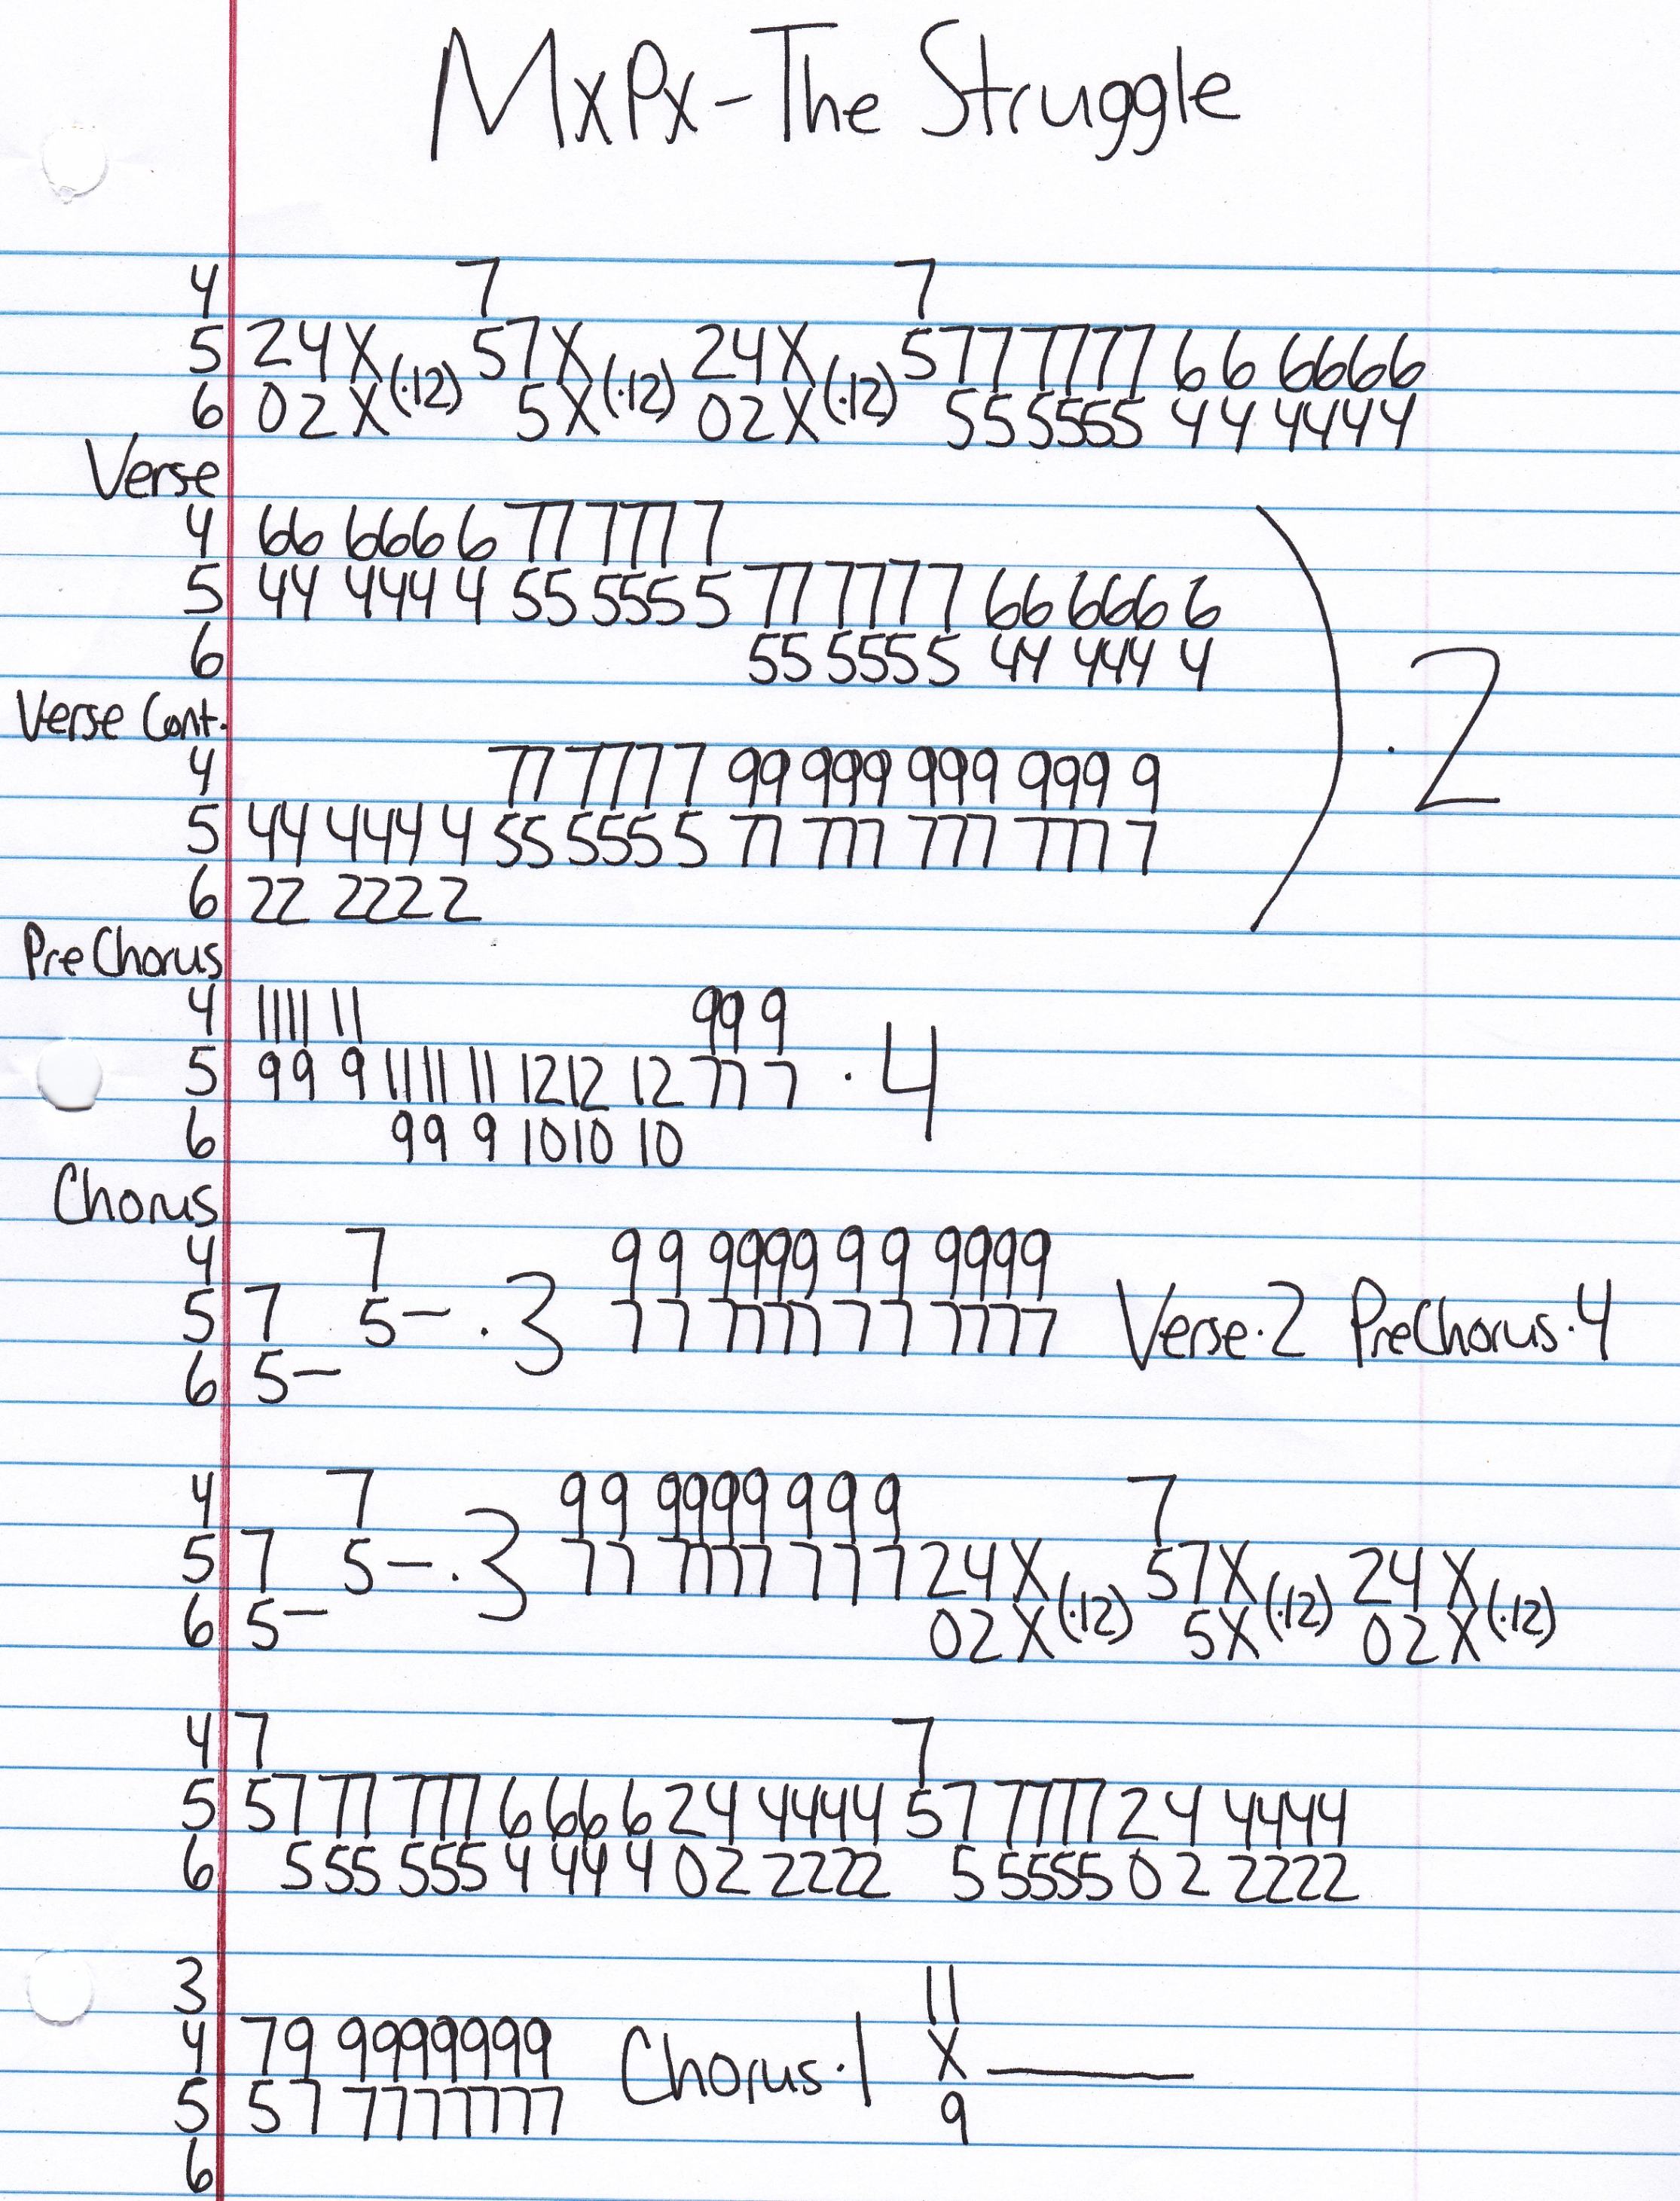 MxPx-The Struggle
4 7 7
5 24X(·12) 57X(·12) 24X(·12) 577 77777 66 6666
6 02X 5X 02X 555555 44 4444
Verse
4 66 6666 77 7777
5 44 4444 55 5555 77 7777 66 6666
6 55 5555 44 4444
Verse Cont. ) · 2
4 77 7777 99 999 999 999 9
5 44 4444 55 5555 77 777 777 777 7
6 22 2222
PreChorus
4 1111 11 99 9
5 99 9 1111 11 1212 12 77 7 · 4
6 99 9 1010 10
Chorus
4 7 9 9 9999 9 9 9999
5 7 5– · 3 7 7 7777 7 7 7777 Verse·2 PreChorus·4
6 5–
4 7 99 9999 9 9 9 7
5 7 5– · 3 77 7777 7 7 7 24X(·12) 57X(·12) 24X(·12)
6 5– 02X 5X 02X
4 7 7
5 57 77 777 6 66 6 24 4444 57 7777 24 4444
6 555 555 4 44 4 02 2222 5 5555 02 2222
3 11
4 79 9999999 Chorus·1 X ———
5 57 7777777 9
6